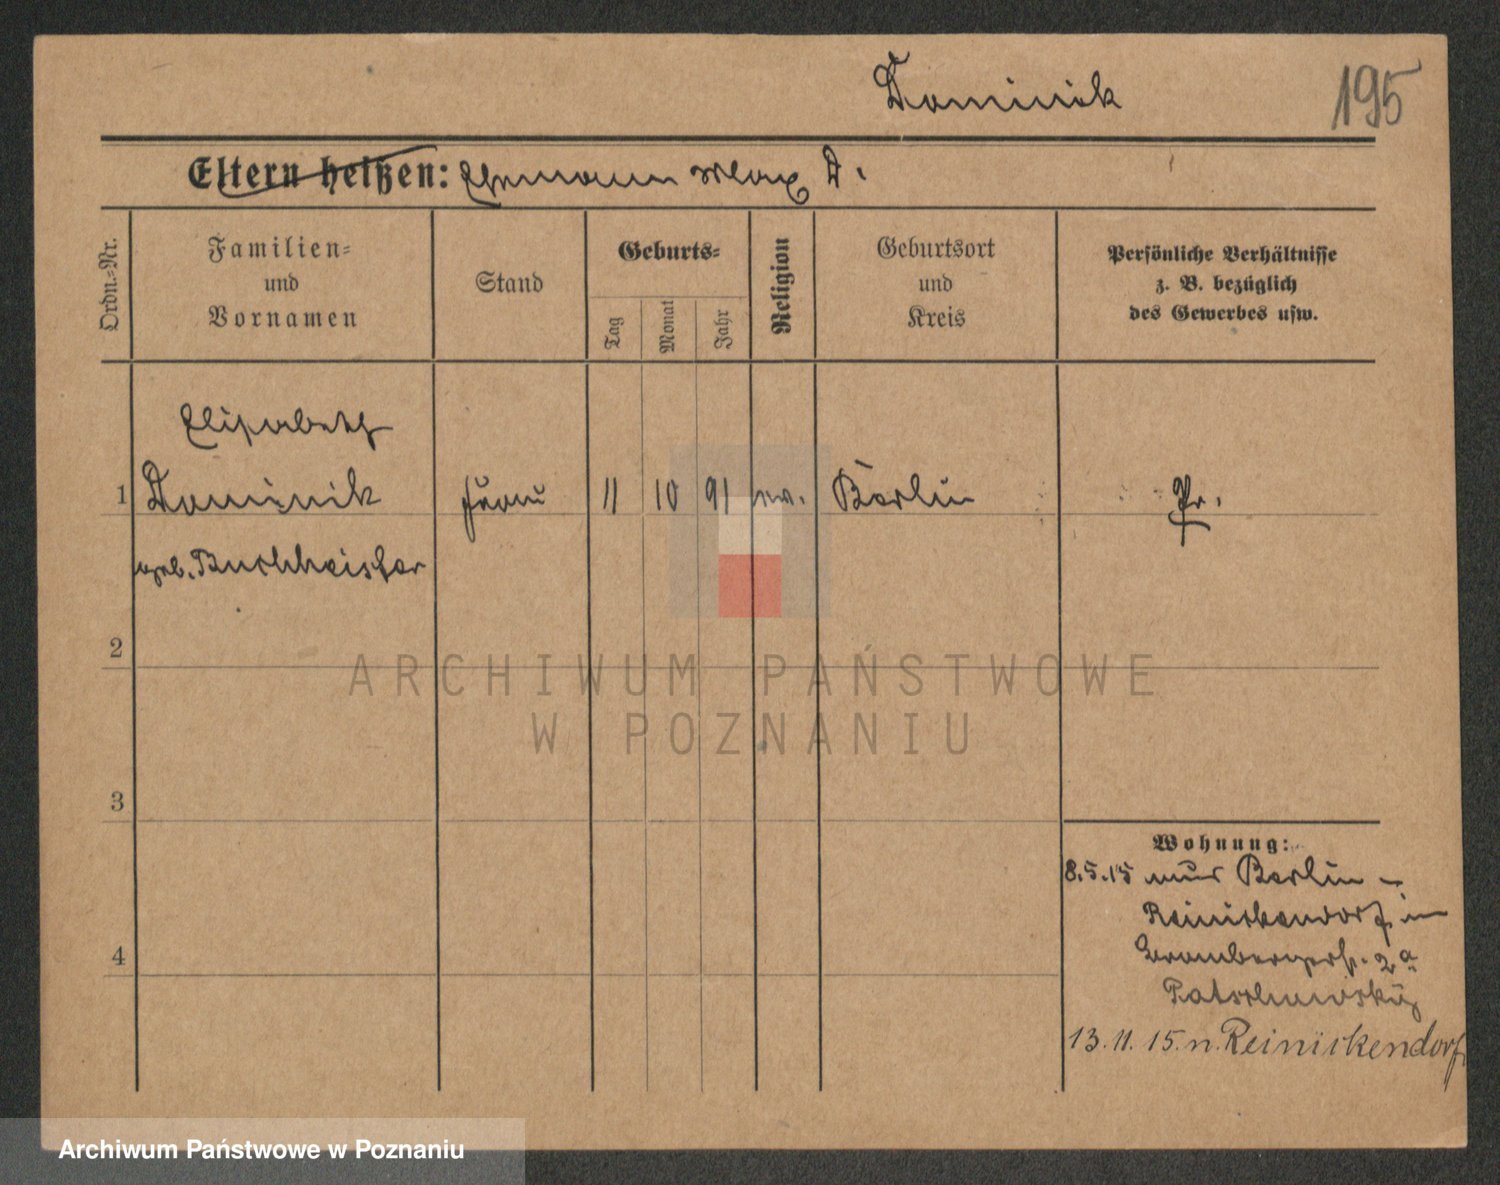 Dominik
195
Eltern heißen: Ehemann Max D.
Ordn.=Nr.
Familien=
und
Vornamen
Stand
Geburts=
Tag
Monat
Jahr
Religion
Geburtsort
und
Kreis
Persönliche Verhältnisse
z. B. bezüglich
des Gewerbes usw.
Elisabeth
1 Dominik Frau 11 10 91 ev. Berlin Pr.
geb. Buchheister
2
ARCHIWUM PAŃSTWOWE
W POZNANIU
3
Wohnung:
8.5.15 aus Berlin -
Reinickendorf in
4
Brombergerstr. 2a
13.11.15. n. Reinickendorf
Archiwum Państwowe w Poznaniu